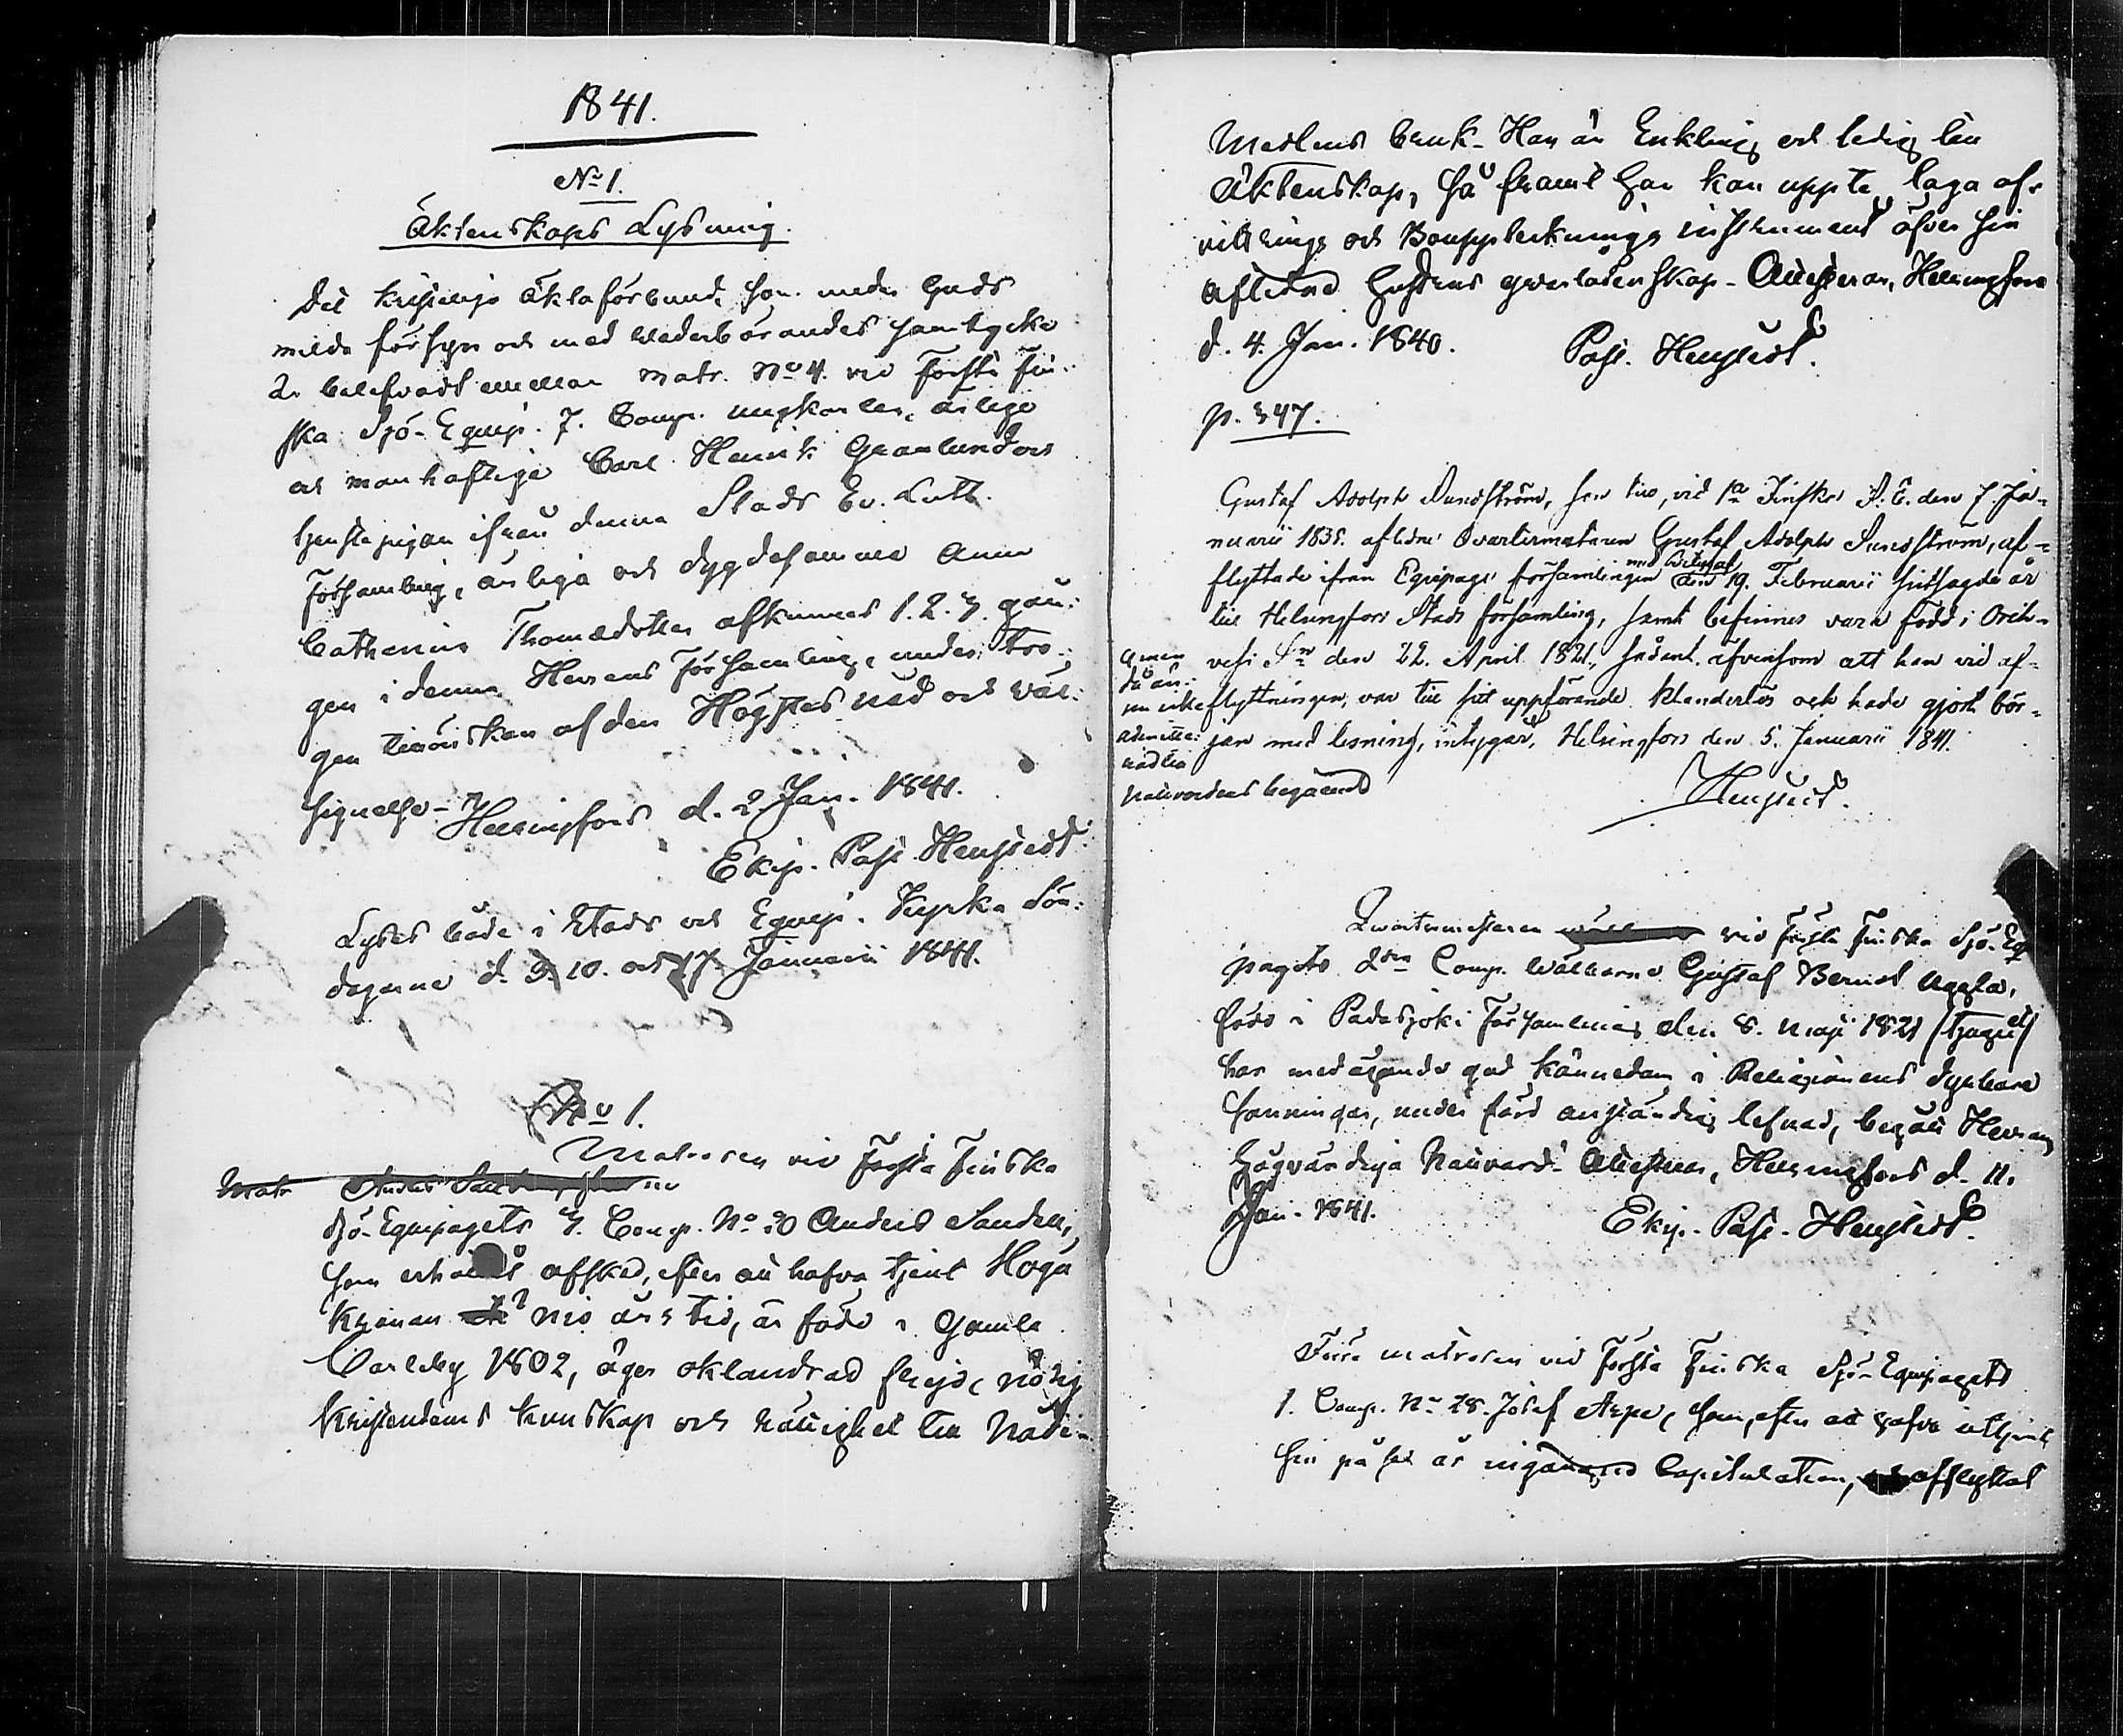 1841.
No 1.
Äktenskaps Lysning.
Det kristeliga äktaförbund, som under Guds
milda försyn och med wederbörandes samtycke
är belefvadt emellan matr. No 4. vid Första Fin-
ska Sjö-Equip. 7. Comp. ungkarlen, ärlige
och manhaftige Carl Henrik Granlund och
tjenstepigan ifrån denna Stads Ev. Luth.
Församling, ärliga och dygdesamma Anna
Catharina Thomædotter afkunnas 1. 2. 3. gån-
gen i denna Herrans Församling, under tro-
gen tillönskan af den Högstes nåd och väl-
signelse - Helsingfors d. 2 Jan. 1841.
Ekip. Past. Hengstedt.
Lystes både i Stads och Equip. Kyrka Sön-
dagarne d. 3. 10. och 17 Januarii 1841.
No 1.
Matrosen vid Första Finska
Matr Anders
Sjö-Equipagets 3. Comp. No 20 Anders Sandell,
som erhållit afsked, efter att hafva tjent Höga
Kronan nio års tid, är född i Gamla
Carleby 1802, äger oklandrad frejd, nödig
kristendoms kunskap och rättighet till Nåde-
Medlens bruk. Han är Enkling och ledig till
Äktenskap, så framt han kan uppte laga af-
vittrings och Bouppteknings instrument öfver sin
aflidna hustrus qvarlåtenskap - Attesteras, Helsingfors
d. 4. Jan. 1840. Past. Hengstedt.
p. 347.
Gustaf Adolph Sundström, son till, vid 1a Finska S. E. den 7. Ja-
nuarii 1835. aflidne Qvartermästaren Gustaf Adolph Sundström, af-
med Betyg af
flyttade ifrån Equipage församlingen den 19. Februarii sistsagde år
till Helsingfors Stads församling, samt befinnes vara född i Orih-
vesi Sn den 22. April 1821, sådant, äfvensom att han vid af-
flyttningen, var till sitt uppförande klanderlös och hade gjort bör-
jan med läsning, intygar, Helsingfors den 5. Januarii 1841.
Hengstedt.
men
då än-
nu icke
admitte-
rad till
Nattvardens begående
Quartermästaren vid Första Finska Sjö-Equi
pagets 2dra Comp. Wälbarne Gustaf Bernd
född i Padasjoki Församling den 8. Maji 1821
har medägande god kännedom i Religionens dyrbara
sanningar, under förd anständig lefnad, begått Herrans
högvärdiga Nattvard. Attesteras, Helsingfors d. 11.
Jan. 1841. Ekip. Past. Hengstedt.
Förre matrosen vid Första Finska Sjö-Equipagets
1. Comp. No 28. Josef som, efter att hafva uttjent
sin på sex år ingångna Capitulation, afflyttat